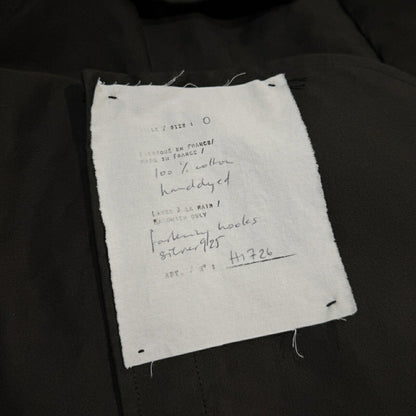 TAILLE / SIZE : 0
FABRIQUÉ EN FRANCE/
MADE IN FRANCE /
100 % cotton
handdyed
LAVER À LA MAIN /
HANDWASH ONLY
fastening hooks
silver 925
ART. / N° :
H1726